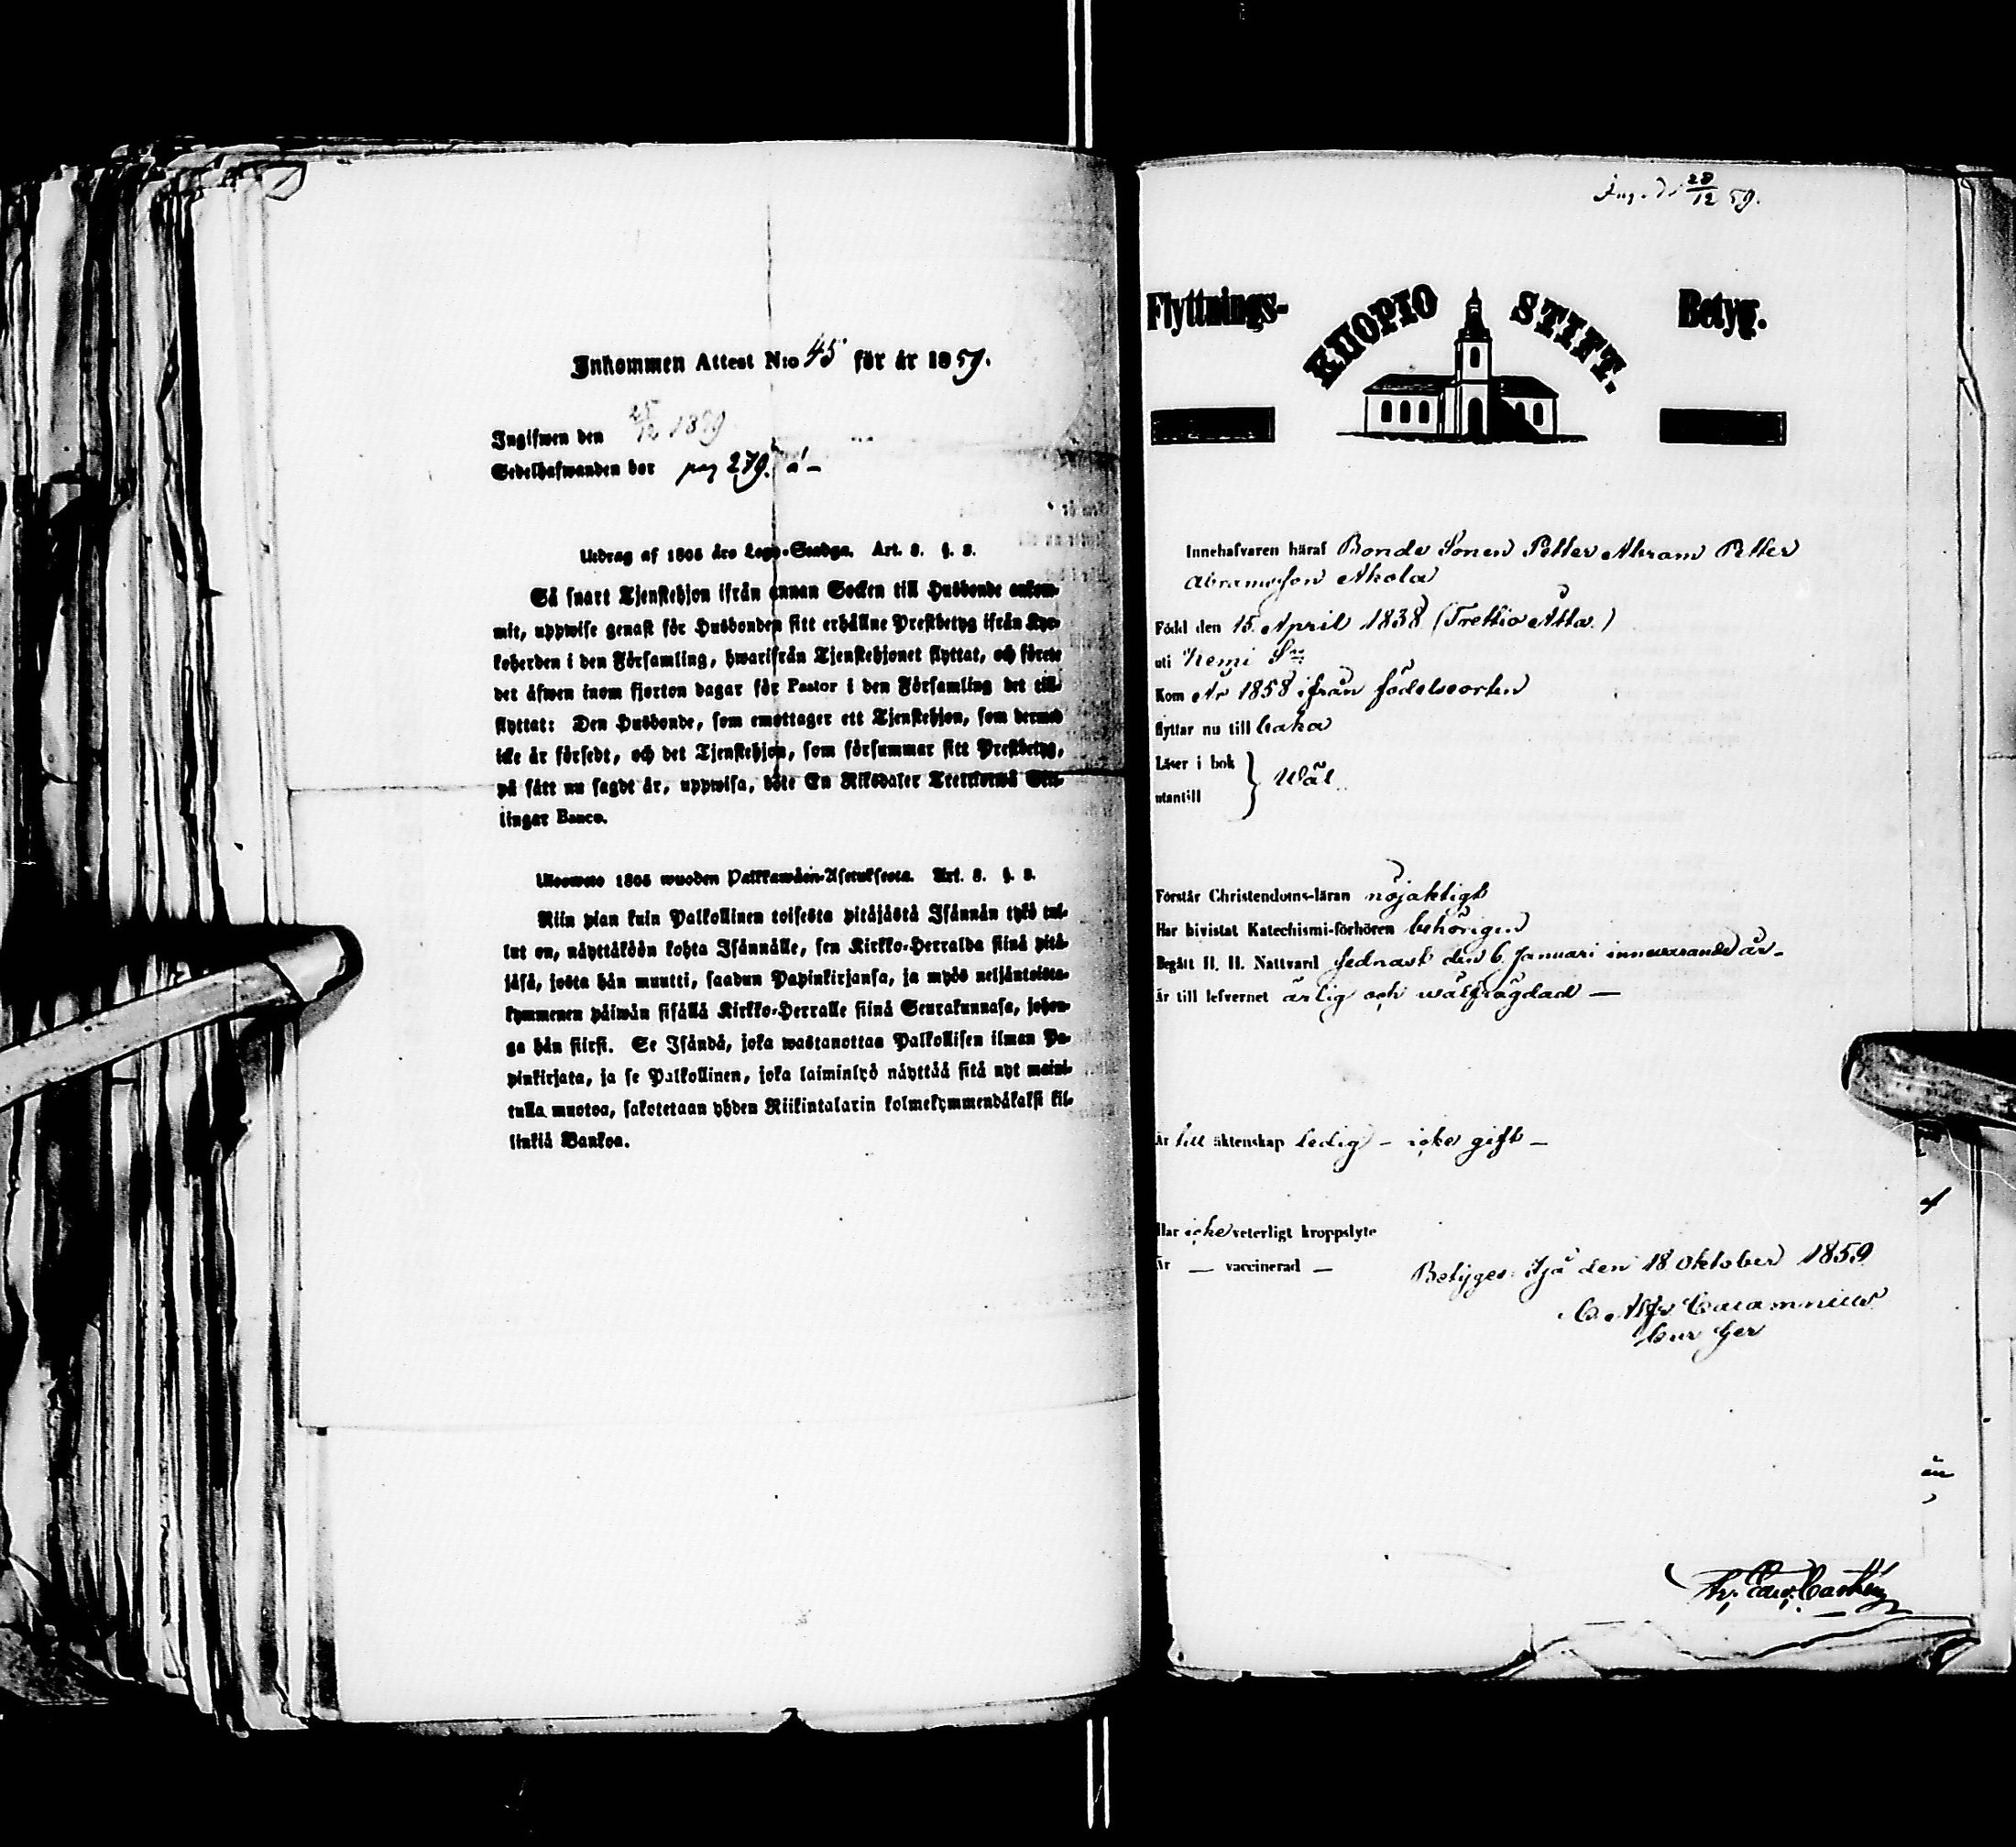 Inkommen Attest N:o 45 för år 1859.
Ingifwen den 25/12 1859
Sedelhafwanden bor pag 279.
Utdrag af 1805 års Lego-Stadga. Art. 8. §. 8.
Så snart Tjenstehjon ifrån annan Socken till Husbonde ankom-
mit, uppwise genast för Husbonden sitt erhållne Prestbetyg ifrån Kyr-
koherden i den Församling, hwarifrån Tjenstehjonet flyttat, och förete
det äfwen inom fjorton dagar för Pastor i den Församling det till-
flyttat: Den Husbonde, som emottager ett Tjenstehjon, som dermed
icke är försedt, och det Tjenstehjon, som försummar sitt Prestbetyg,
på sätt nu sagdt är, uppwisa, böte En Riksdaler Trettiotwå Skil-
lingar Banco.
Uloswето 1805 wuoden Palkkawäen-Asetuksesta. Art. 8. §. 8.
Niin pian kuin Palkollinen toisesta pitäjästä Isännän tykö tul-
lut on, näyttäköön kohta Isännälle, sen Kirkko-Herralda siinä pitä-
jäsä, josta hän muutti, saadun Papinkirjansa, ja myös neljäntoista-
kymmenen päiwän sisällä Kirkko-Herralle siinä Seurakunnasa, johon-
ga hän siirsi. Se Isändä, joka wastanottaa Palkollisen ilman Pa-
pinkirjata, ja se Palkollinen, joka laiminlyö näyttää sitä nyt maini-
tulla muotoa, sakotetaan yhden Riikintalarin kolmekymmendäkaksi kil-
linkiä Bankoa.
28/12 59.
Flyttnings- KUOPIO STIFT. Betyg.
Innehafvaren häraf Bonde Sonen Petter Abram Petter
Abramsson Akola
Född den 15 April 1838 (Trettio Åtta.)
uti Kemi Sn
Kom År 1858 ifrån födelseorten
flyttar nu till baka
Läser i bok
utantill } Wäl
Förstår Christendoms-läran nöjaktigt
Har bivistat Katechismi-förhören behörigen
Begått H. H. Nattvard sednast den 6 Januari innevarande år-
Är till lefvernet ärlig och wälfrägdad —
Är till äktenskap ledig – icke gift –
Har icke veterligt kroppslyte
Är — vaccinerad —
Betyges Ijå den 18 Oktober 1859
Calamnius